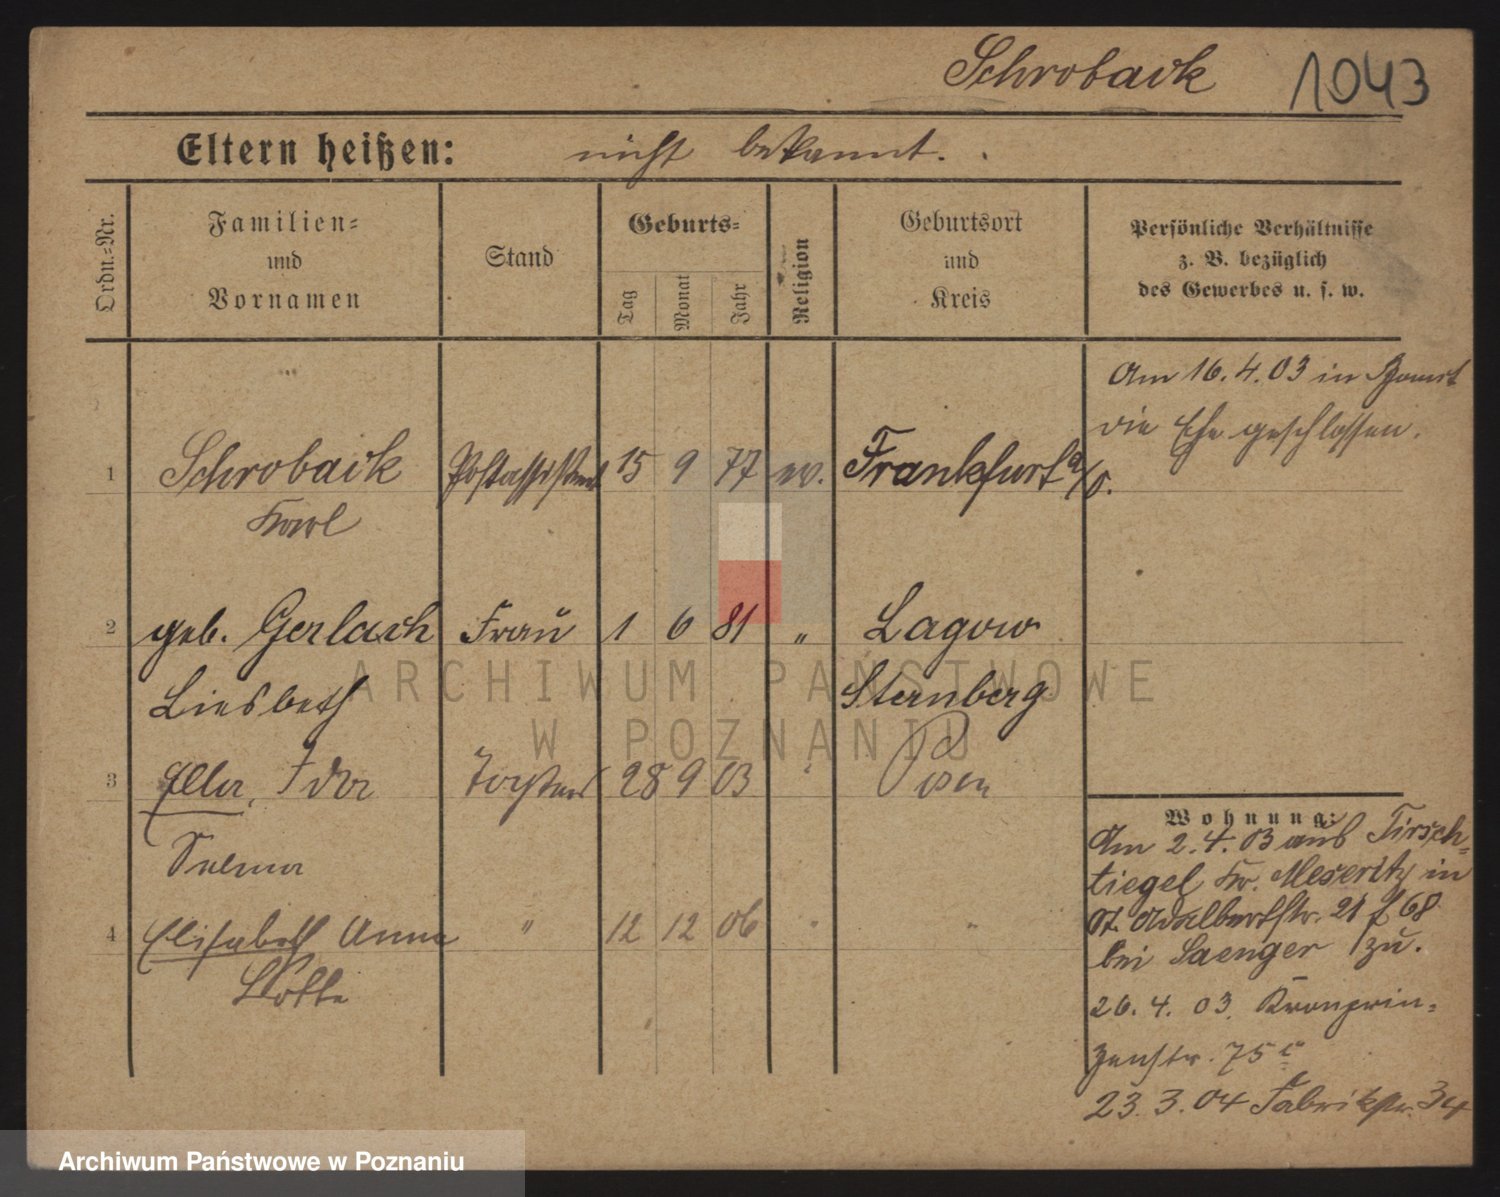 Schroback 1043
Eltern heißen: nicht bekannt.
Ordn.=Nr.
Familien=
und
Vornamen
Stand
Geburts=
Tag
Monat
Jahr
Religion
Geburtsort
und
Kreis
Persönliche Verhältnisse
z. B. bezüglich
des Gewerbes u. s. w.
Am 16.4.03 in Bomst
die Ehe geschlossen.
1 Schroback Postassistent 15 9 77 ev. Frankfurt a/O.
Karl
2 geb. Gerlach Frau 1 6 81 " Lagow
Liesbeth Sternberg
3 Ella, Ida Tochter 28 9 03 Posen
Selma
4 Elisabeth Anna " 12 12 06 "
Lotte
Wohnung:
Am 2.4.03 aus Tirsch=
tiegel Kr. Meseritz in
St. Adalbertstr. 21 68
bei Saenger zu.
26.4.03. Kronprin=
zenstr. 75 c
23.3.04 Fabrikstr. 34
ARCHIWUM PAŃSTWOWE
W POZNANIU
Archiwum Państwowe w Poznaniu